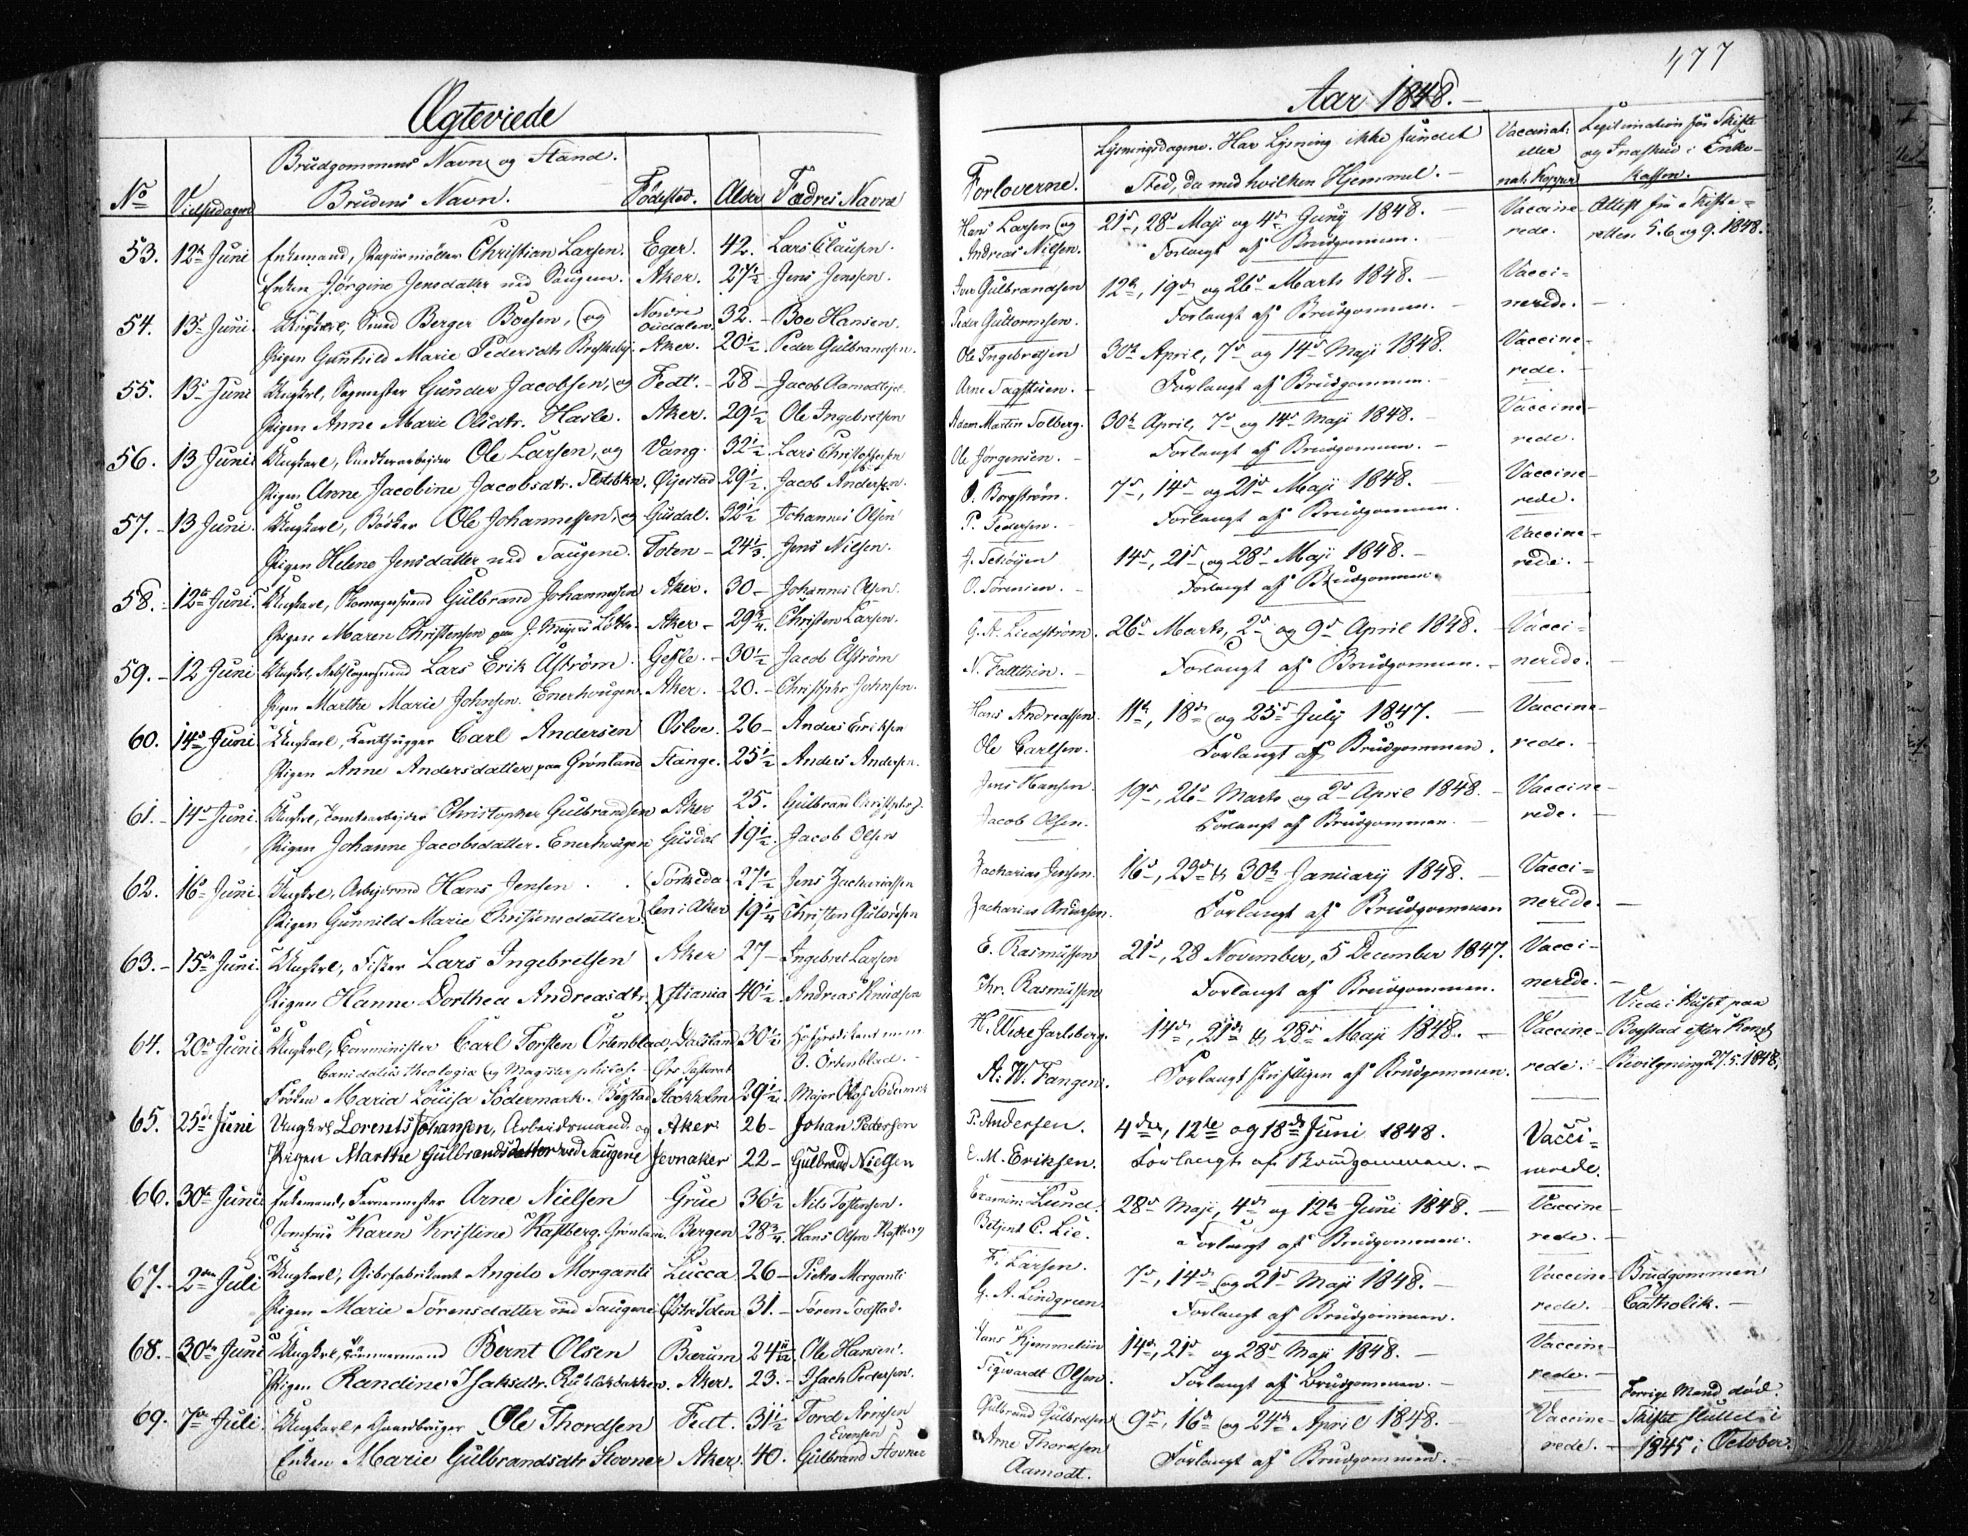 477
Ægteviede
Aar 1848.
No
Vielsesdagen
Brudgommens Navn og Stand.
Brudens Navn.
Fødested.
Alder
Fædres Navne
Forloverne.
Lysningsdagene. Har Lysning ikke fundet
Sted, da med hvilken Hjemmel.
Vaccinat.
eller
nat. Kopper
Legitimation for Skifte
og Indskud i Enke-
kassen.
53. 12te Juni Enkemand, Christian Larsen. Eger. 42. Lars Clausen.
Enken Jørgine Jensdatter ved Saugene. Aker. 27½ Jens Jensen.
Hans Larsen og 21de, 28de Maji og 4de Juny 1848. Vaccine- Attest fra Skifte-
Andreas Nilsen. Forlangt af Brudgommen. rede. retten 5.6 og 9. 1848.
54. 13de Juni. Ungkarl, Smed Berger Boesen, og Nordre Oudalen 32. Boe Hansen.
Pigen Gunhild Marie Pedersdtr Aker. 20½ Peder Gulbrandsen.
Iver Gulbrandsen 12te, 19de og 26de Marts 1848. Vacci-
Peder Guttormsen. Forlangt af Brudgommen. nerede.
55. 13de Juni Ungkrl, Sagmester Gunder Jacobsen, og Fedt. 28 Jacob Aamodtejet
Pigen Anne Marie Olsdtr. Hasle. Aker. 29½ Ole Ingebretsen
Ole Ingebretsen 30te April, 7de og 14de Maji 1848. Vaccine-
Arne Forlangt af Brudgommen. rede.
56. 13 Juni. Ungkarl, Ole Larsen, og Vang. 32½ Lars Christophersen
Pigen Anne Jacobine Jacobsdtr. Øijestad 29½ Jacob Andersen.
Adam Martin Solberg. 30te April, 7de og 14de Maji 1848. Vaccine-
Ole Jørgensen. Forlangt af Brudgommen. rede.
57. 13 Juni. Ungkarl, Ole Johannessen, og Gusdal. 32½ Johannes Olsen
Pigen Helene Jensdatter ved Saugene. Toten 24⅓ Jens Nielsen.
O. Borgström. 7de, 14de og 21de Maji 1848. Vaccine-
P. Pedersen. Forlangt af Brudgommen. rede.
58. 12te Juni. Ungkarl, Gulbrand Johannesen Aker. 30 Johannes Olsen.
Pigen Maren Christensen paa J. Meyers Løkke Aker 29¾ Christen Larsen.
J. Schøyen 14de, 21de og 28de Maji 1848. Vaccine-
O. Sørensen. Forlangt af Brudgommen. rede.
59. 12 Juni Ungkrl, Lars Erik Åström. Gefle. 30½ Jacob Åström
Pigen Marthe Marie Johnsen. Enerhougen Aker. 20. Christopher Johnsen.
G. A. Liedström. 26de Marts, 2de og 9de April 1848. Vacci-
N. Forlangt af Brudgommen. nerede.
60. 14de Juni. Ungkarl, Carl Andersen Osloe. 26 Anders Eriksen
Pigen Anne Andersdatter, paa Grønland Stange. 25½ Anders Andersen.
Hans Andreassen. 11te, 18de og 25de July 1847. Vaccine-
Ole Carlsen. Forlangt af Brudgommen. rede.
61. 14de Juni. Ungkrl, Christopher Gulbrandsen Aker 25. Gulbran Christophs.
Pigen Johanne Jacobsdatter. Enerhougen Gusdal 19½. Jacob Olsen
Jens Hansen. 19de, 26de Marts og 2de April 1848. Vaccine-
Jacob Olsen. Forlangt af Brudgommen. rede.
62. 16de Juni. Ungkrl, Arbejdsmd Hans Jensen Sørkeda 27½ Jens Zachariasen
Pigen Gunnild Marie Christensdatter len i Aker 19¼ Christen Gulbrsen
Zacharias Jensen. 16de, 23de & 30te January 1848. Vacci-
Zacharias Andersen. Forlangt af Brudgommen nerede.
63. 15de Juni. Ungkrl, Fisker Lars Ingebretsen Aker 27 Ingebret Larsen
Pigen Hanne Dorthea Andreasdtr. Xstiania 40½ Andreas Knudsen
E. Rasmussen 21de, 28 November, 5 December 1847. Vacci-
Chr. Rasmussen Forlangt af Brudgommen. nerede.
64. 20de Juni Ungkrl, Comminister Carl Torsten Örtenblad, Dalsland 30½ Hofpredikant m. m.
Candidatus theologiæ og Magister philos. O. Örtenblad.
Frøken Maria Louisa Södermark. Bogstad Stockholm 29½ Major Olof Södermark
H. Wedel Jarlsberg. 14de, 21de & 28de Maji 1848. Vaccine- Viede i Huset paa
A. W. Fangen. Forlangt skriftligen af Brudgommen. rede. Bogstad efter Kongl.
Bevilgning 27.5.1848.
65. 25de Juni Ungkrl Lorents Johansen, Arbeidsmand og Aker 26 Johan Pedersen
Pigen Marthe Gulbrandsdatter ved Saugene Jevnaker 22 Gulbrand Nielsen
P. Andersen. 4de, 12te og 18de Juni 1848. Vacci-
E. M. Eriksen. Forlangt af Brudgommen. nerede.
66. 30te Juni Enkemand, Arne Nielsen Grue 36½ Nils Tostensen.
Jomfrue Karen Kristine Rastberg. Grønland. Bergen 28¾. Hans Olsen Rastberg
Examin: Lund. 28de Maji, 4de og 12te Juni 1848. Vaccine-
Betjent C. Lie. Forlangt af Brudgommen. rede.
67. 2den Juli Ungkarl, Gibsfabrikant Angelo Morganti Lucca 26 Pietro Morganti
Pigen Marie Sørensdatter ved Saugene 31. Søren
F. Larsen. 7de, 14de og 21de Maji 1848. Vaccine- Brudgommen
G. A. Lindgreen Forlangt af Brudgommen. rede. Catholik.
68. 30te Juni Ungkrl, Tømmermand Bernt Olsen Bærum 24 11/12 Ole Hansen.
Pigen Randine Isaksdtr. Aker. 23. Isach Pedersen.
Hans 14de, 21de og 28de Maji 1848. Vaccine-
Sigvardt Olsen. Forlangt af Brudgommen. rede.
69. 7de Juli. Ungkarl, Gaardbruger Ole Thordsen Fedt. 31½ Tord Arnesen
Evensen
Enken Marie Gulbrandsdtr Stovner Aker 40. Gulbrand Stovner
Gulbrand Gulbrdsen 9de, 16de og 24de April 1848. Vaccine- Forrige Mand død.
Arne Thordsen Forlangt af Brudgommen. rede. Skiftet sluttet i
Aamodt. 1845 i October.